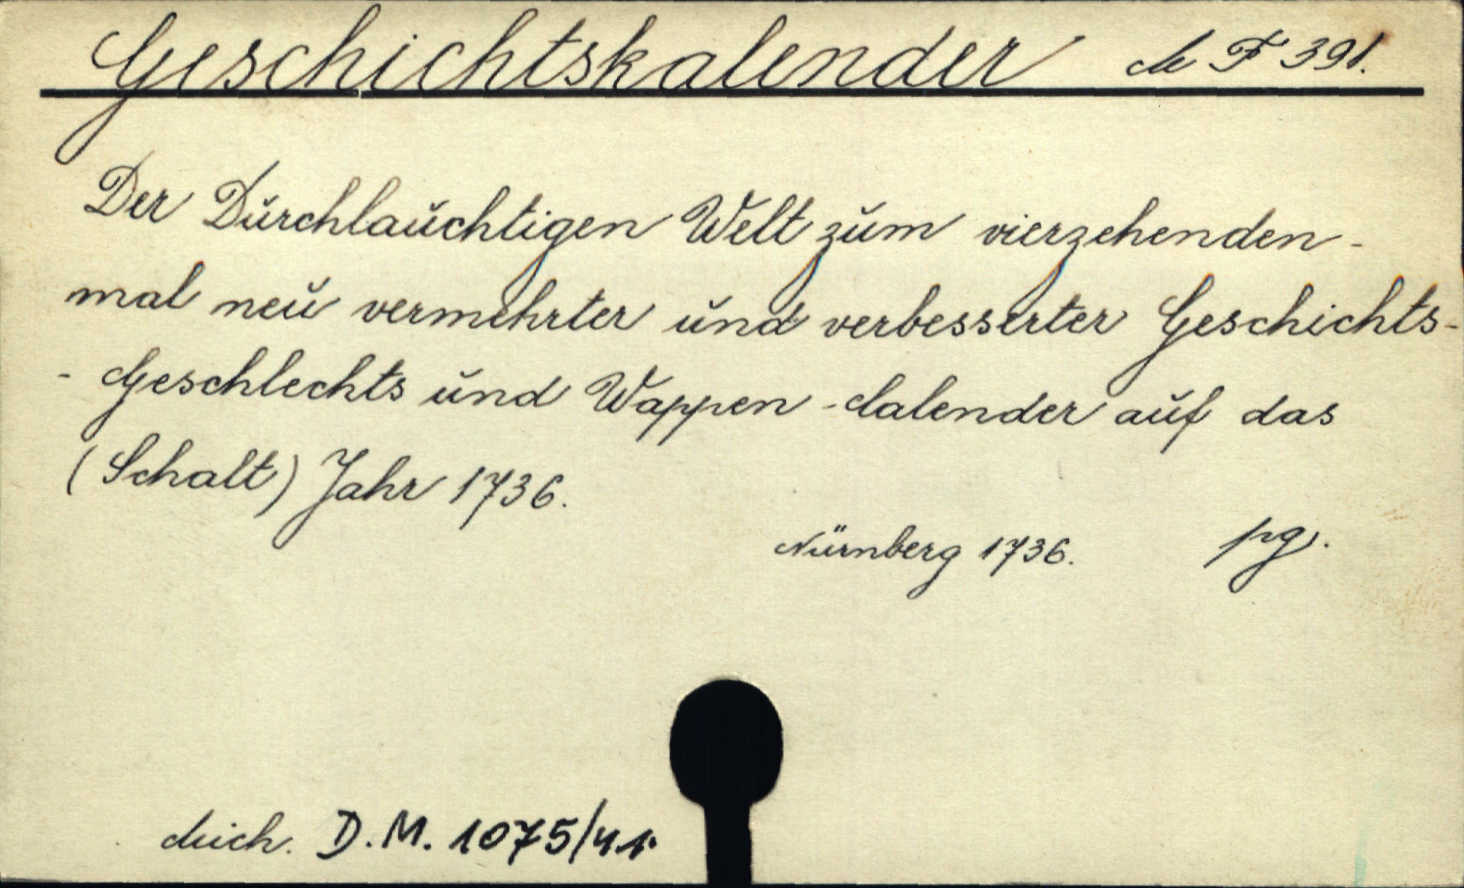 Geschichtskalender M F 391.
Der Durchlauchtigen Welt zum vierzehenden-
mal neu vermehrter und verbesserter Geschichts-
- Geschlechts und Wappen - Calender auf das
(Schalt) Jahr 1736.
Nürnberg 1736. pg.
D.M. 1075/41.